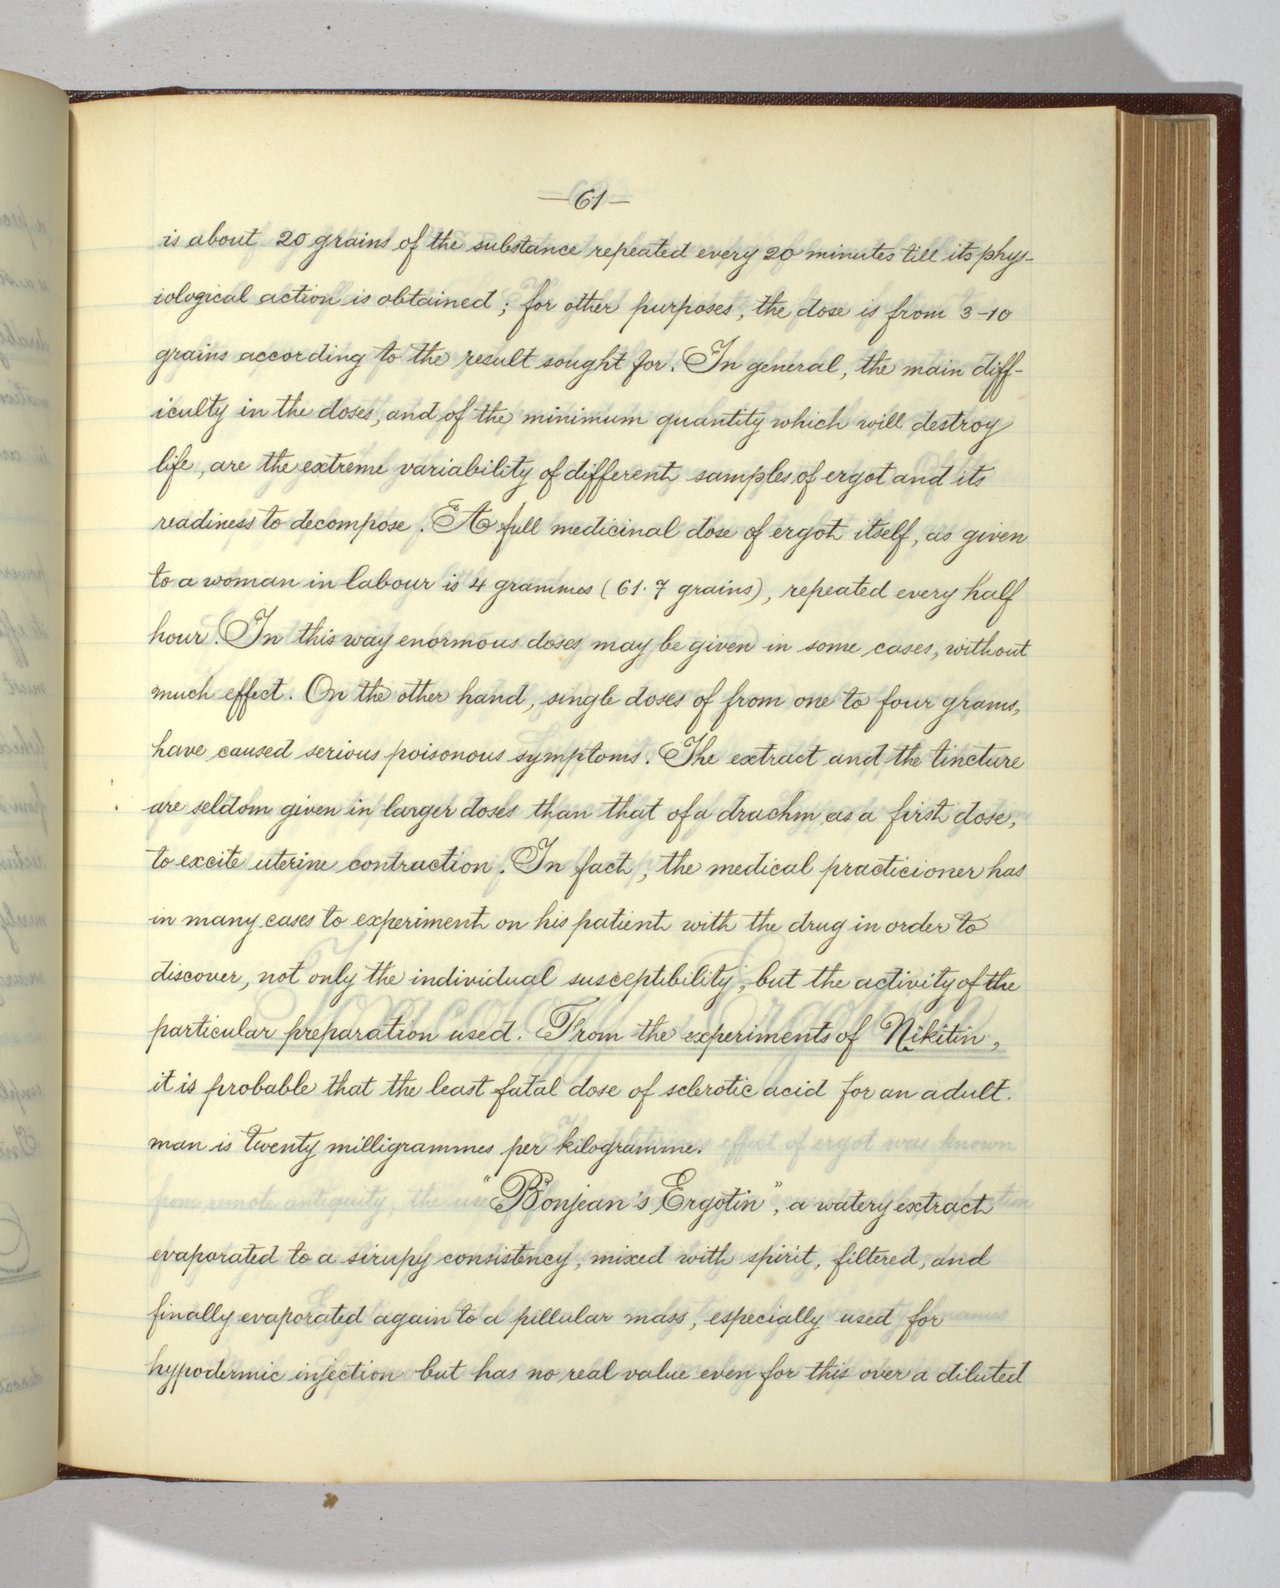 —61—
is about 20 grains of the substance repeated every 20 minutes till its phys-
iological action is obtained; for other purposes, the dose is from 3-10
grains according to the result sought for. In general, the main diff-
iculty in the doses, and of the minimum quantity which will destroy
life, are the extreme variability of different samples of ergot and its
readiness to decompose. A full medicinal dose of ergot itself, as given
to a woman in labour is 4 grammes (61.7 grains), repeated every half
hour. In this way enormous doses may be given in some cases, without
much effect. On the other hand, single doses of from one to four grams,
have caused serious poisonous symptoms. The extract and the tincture
are seldom given in larger doses than that of a drachm as a first dose,
to excite uterine contraction. In fact, the medical practicioner has
in many cases to experiment on his patient with the drug in order to
discover, not only the individual susceptibility, but the activity of the
particular preparation used. From the experiments of Nikitin,
it is probable that the least fatal dose of sclerotic acid for an adult.
man is twenty milligrammes per kilogramme.
"Bonjean's Ergotin", a watery extract
evaporated to a sirupy consistency, mixed with spirit, filtered, and
finally evaporated again to a pillular mass, especially used for
hypodermic injection but has no real value even for this over a diluted